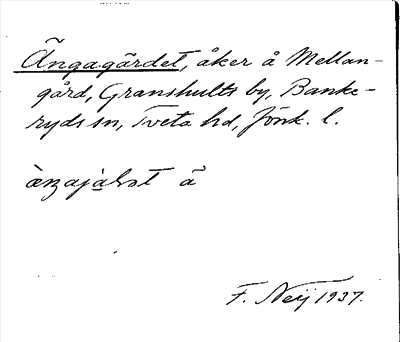 Ängagärdet, åker å Mellan-
gård, Granshults by, Banke-
ryds sn, Tveta hd, Jönk. l.
å
F. Neij 1937.